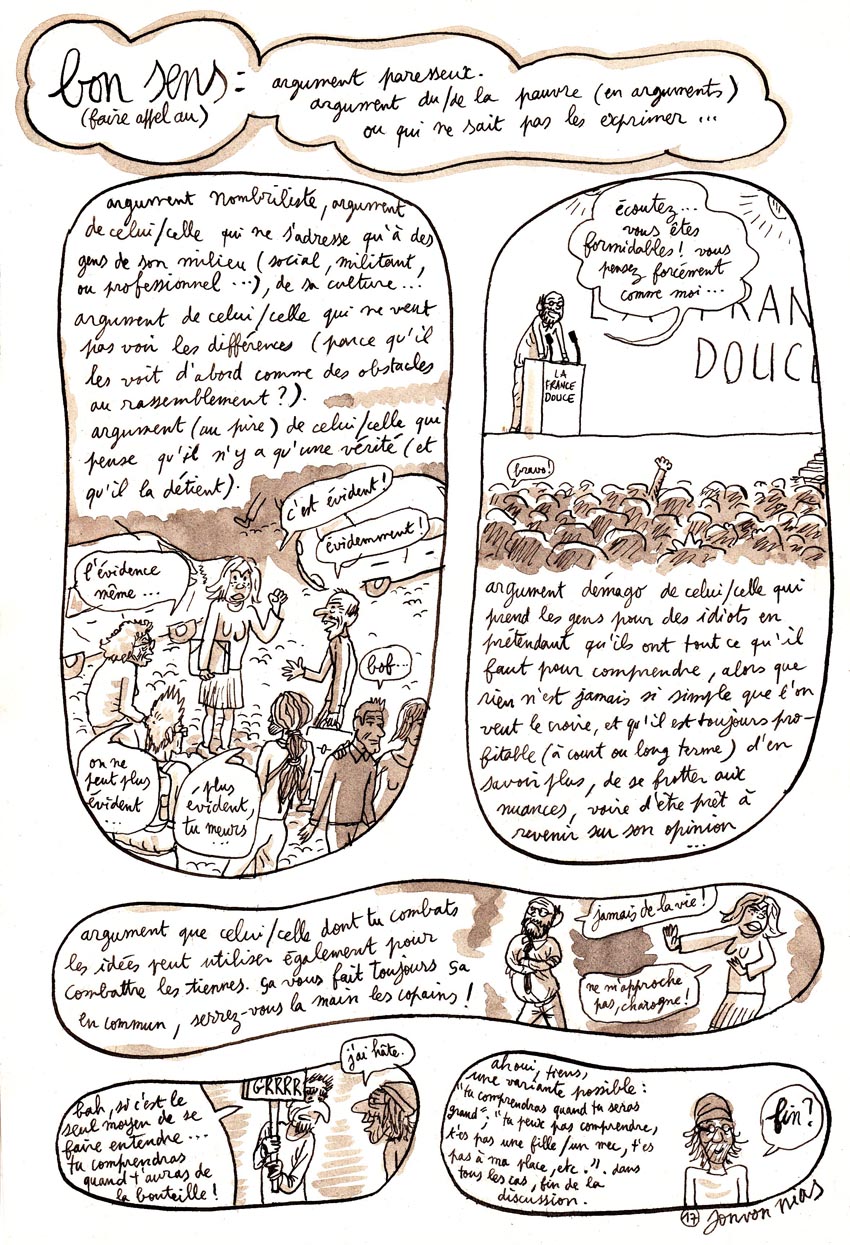 bon sens :
(faire appel au)
argument paresseux.
argument du/de la pauvre (en arguments)
ou qui ne sait pas les exprimer ...
argument nombriliste, argument
de celui/celle qui ne s'adresse qu'à des
gens de son milieu (social, militant,
ou professionnel ...), de sa culture...
argument de celui/celle qui ne veut
pas voir les différences (parce qu'il
les voit d'abord comme des obstacles
au rassemblement ?).
argument (au pire) de celui/celle qui
pense qu'il n'y a qu'une vérité (et
qu'il la détient).
c'est évident !
évidemment !
l'évidence
même ...
bof...
on ne
peut plus
évident
...
plus
évident,
tu meurs
...
écoutez...
vous êtes
formidables ! vous
pensez forcément
comme moi ...
LA FRAN
DOUCE
LA
FRANCE
DOUCE
bravo !
argument démago de celui/celle qui
prend les gens pour des idiots en
prétendant qu'ils ont tout ce qu'il
faut pour comprendre, alors que
rien n'est jamais si simple que l'on
veut le croire, et qu'il est toujours pro-
fitable (à court ou long terme) d'en
savoir plus, de se frotter aux
nuances, voire d'être prêt à
revenir sur son opinion
...
argument que celui/celle dont tu combats
les idées peut utiliser également pour
combattre les tiennes. ça vous fait toujours ça
en commun, serrez-vous la main les copains !
jamais de la vie !
ne m'approche
pas, charogne !
bah, si c'est le
seul moyen de se
faire entendre ...
tu comprendras
quand t'auras de
la bouteille !
GRRRR
j'ai hâte.
ah oui, tiens,
une variante possible :
"tu comprendras quand tu seras
grand", "tu peux pas comprendre,
t'es pas une fille/un mec, t'es
pas à ma place, etc.". dans
tous les cas, fin de la
discussion.
fin ?
17 jonvon nias